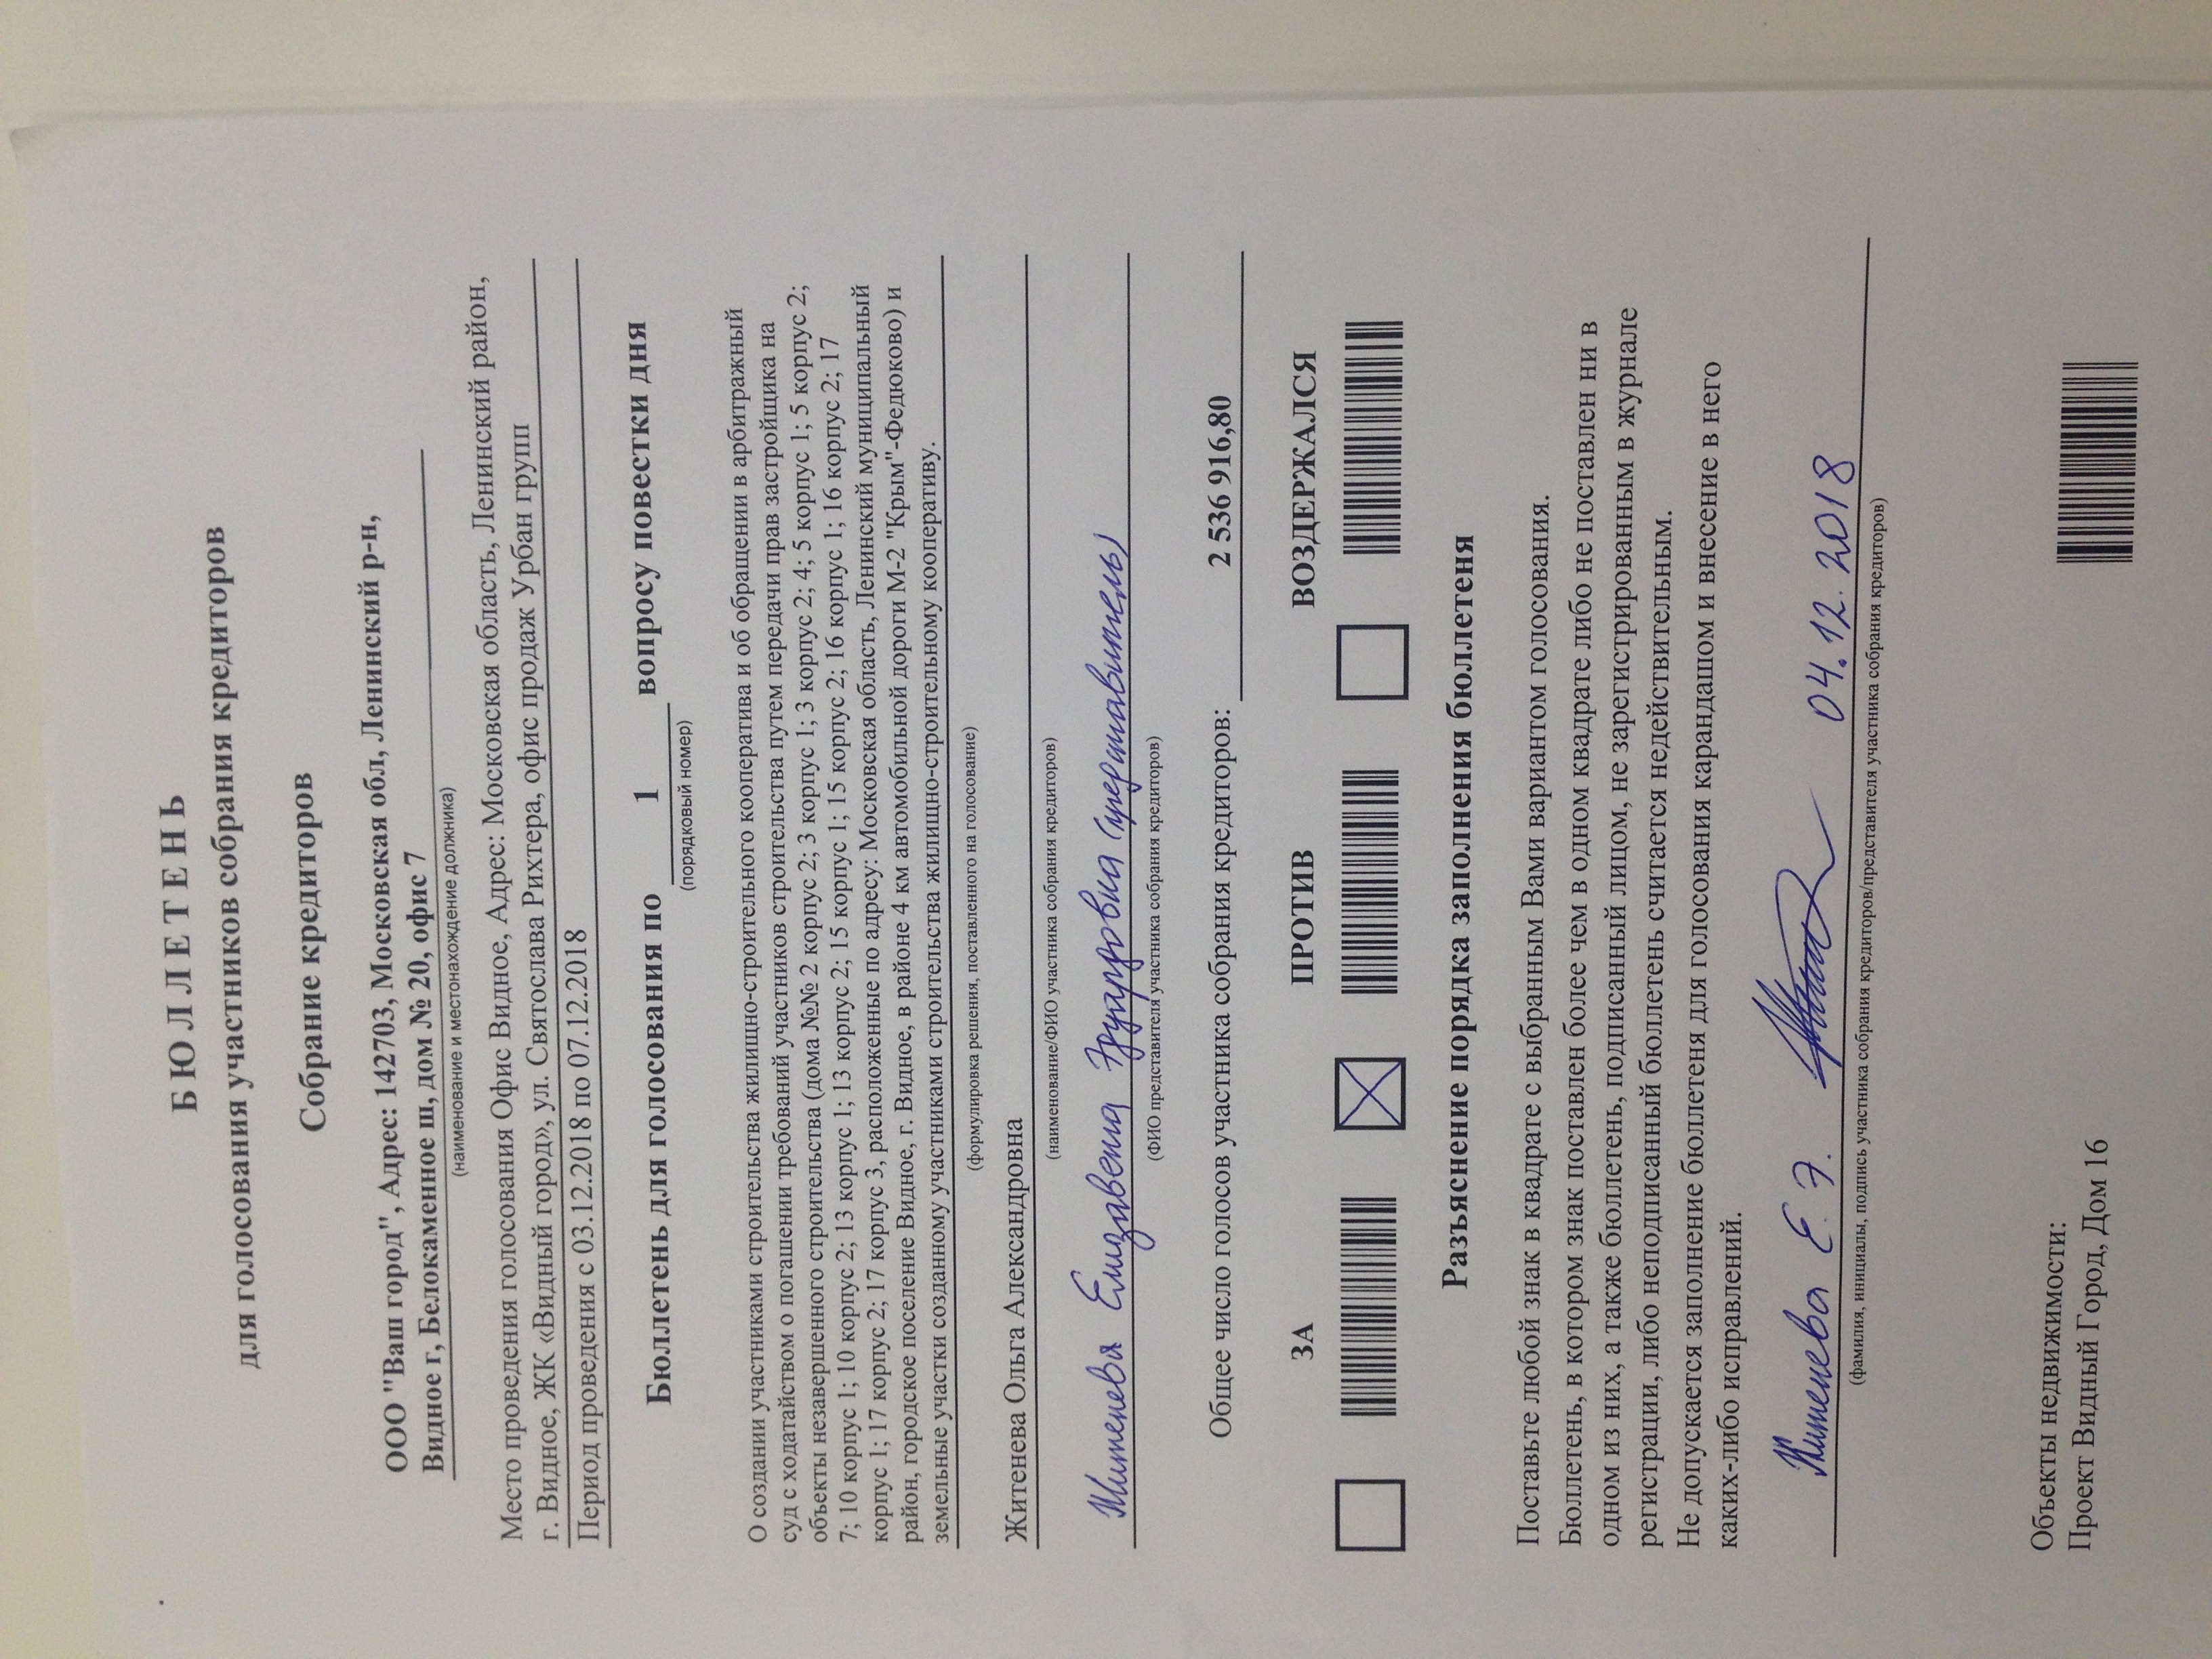 БЮЛЛЕТЕНЬ
для голосования участников собрания кредиторов
Собрание кредиторов
ООО "Ваш город", Адрес: 142703, Московская обл, Ленинский р-н,
Видное г, Белокаменное ш, дом № 20, офис 7
(наименование и местонахождение должника)
Место проведения голосования Офис Видное, Адрес: Московская область, Ленинский район,
г. Видное, ЖК «Видный город», ул. Святослава Рихтера, офис продаж Урбан групп
Период проведения с 03.12.2018 по 07.12.2018
Бюллетень для голосования по 1 вопросу повестки дня
(порядковый номер)
О создании участниками строительства жилищно-строительного кооператива и об обращении в арбитражный
суд с ходатайством о погашении требований участников строительства путем передачи прав застройщика на
объекты незавершенного строительства (дома №№ 2 корпус 2; 3 корпус 1; 3 корпус 2; 4; 5 корпус 1; 5 корпус 2;
7; 10 корпус 1; 10 корпус 2; 13 корпус 1; 13 корпус 2; 15 корпус 1; 15 корпус 2; 16 корпус 1; 16 корпус 2; 17
корпус 1; 17 корпус 2; 17 корпус 3, расположенные по адресу: Московская область, Ленинский муниципальный
район, городское поселение Видное, г. Видное, в районе 4 км автомобильной дороги М-2 "Крым"-Федюково) и
земельные участки созданному участниками строительства жилищно-строительному кооперативу.
(формулировка решения, поставленного на голосование)
Житенева Ольга Александровна
(наименование/ФИО участника собрания кредиторов)
Житенева Елизавета Эдуардовна (представитель)
(ФИО представителя участника собрания кредиторов)
Общее число голосов участника собрания кредиторов: 2 536 916,80
ЗА ПРОТИВ ВОЗДЕРЖАЛСЯ
Разъяснение порядка заполнения бюллетеня
Поставьте любой знак в квадрате с выбранным Вами вариантом голосования.
Бюллетень, в котором знак поставлен более чем в одном квадрате либо не поставлен ни в
одном из них, а также бюллетень, подписанный лицом, не зарегистрированным в журнале
регистрации, либо неподписанный бюллетень считается недействительным.
Не допускается заполнение бюллетеня для голосования карандашом и внесение в него
каких-либо исправлений.
Житенева Е. Э. 04.12.2018
(фамилия, инициалы, подпись участника собрания кредиторов/представителя участника собрания кредиторов)
Объекты недвижимости:
Проект Видный Город, Дом 16